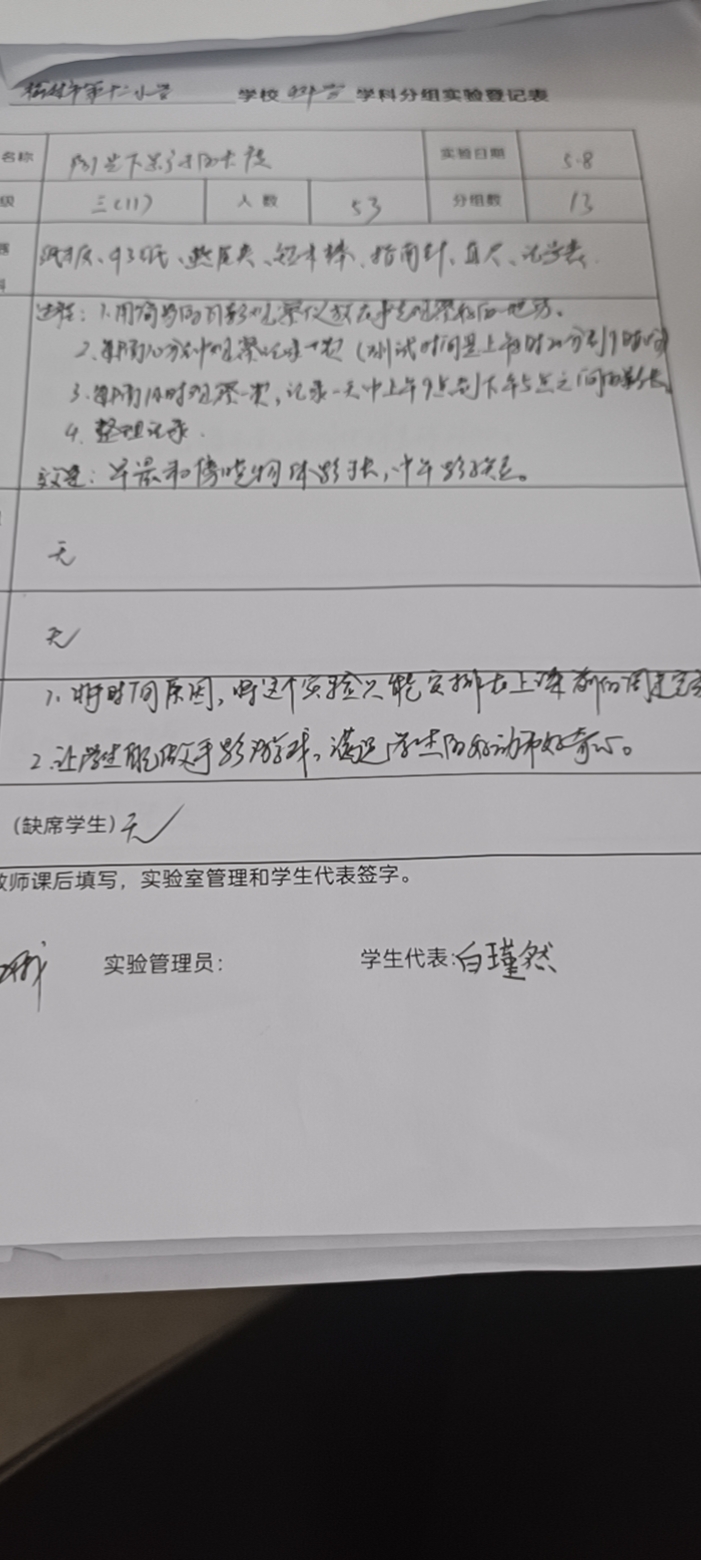 市第十二小学 学校 科学 学科分组实验登记表
名称 阳光下影子的长度 实验日期 5.8
级 三(11) 人数 53 分组数 13
纸板、 纸、燕尾夹、短木棒、指南针、直尺、记录表
过程:1.用简易的日影观察仪放在事先观察好的地方。
2.每隔10分钟观察记录一次(测试时间是上午 时20分到9时
3.每隔1小时观察一次,记录一天中上午9点到下午5点之间的影长
4.整理记录.
:早晨和傍晚物体影长,中午影短。
无
无
1.时间原因,这个实验只能安排在上课前的周
2.让学生做手影游戏,满足学生的好动和好奇心。
(缺席学生)无
教师课后填写,实验室管理和学生代表签字。
实验管理员: 学生代表:白瑾然